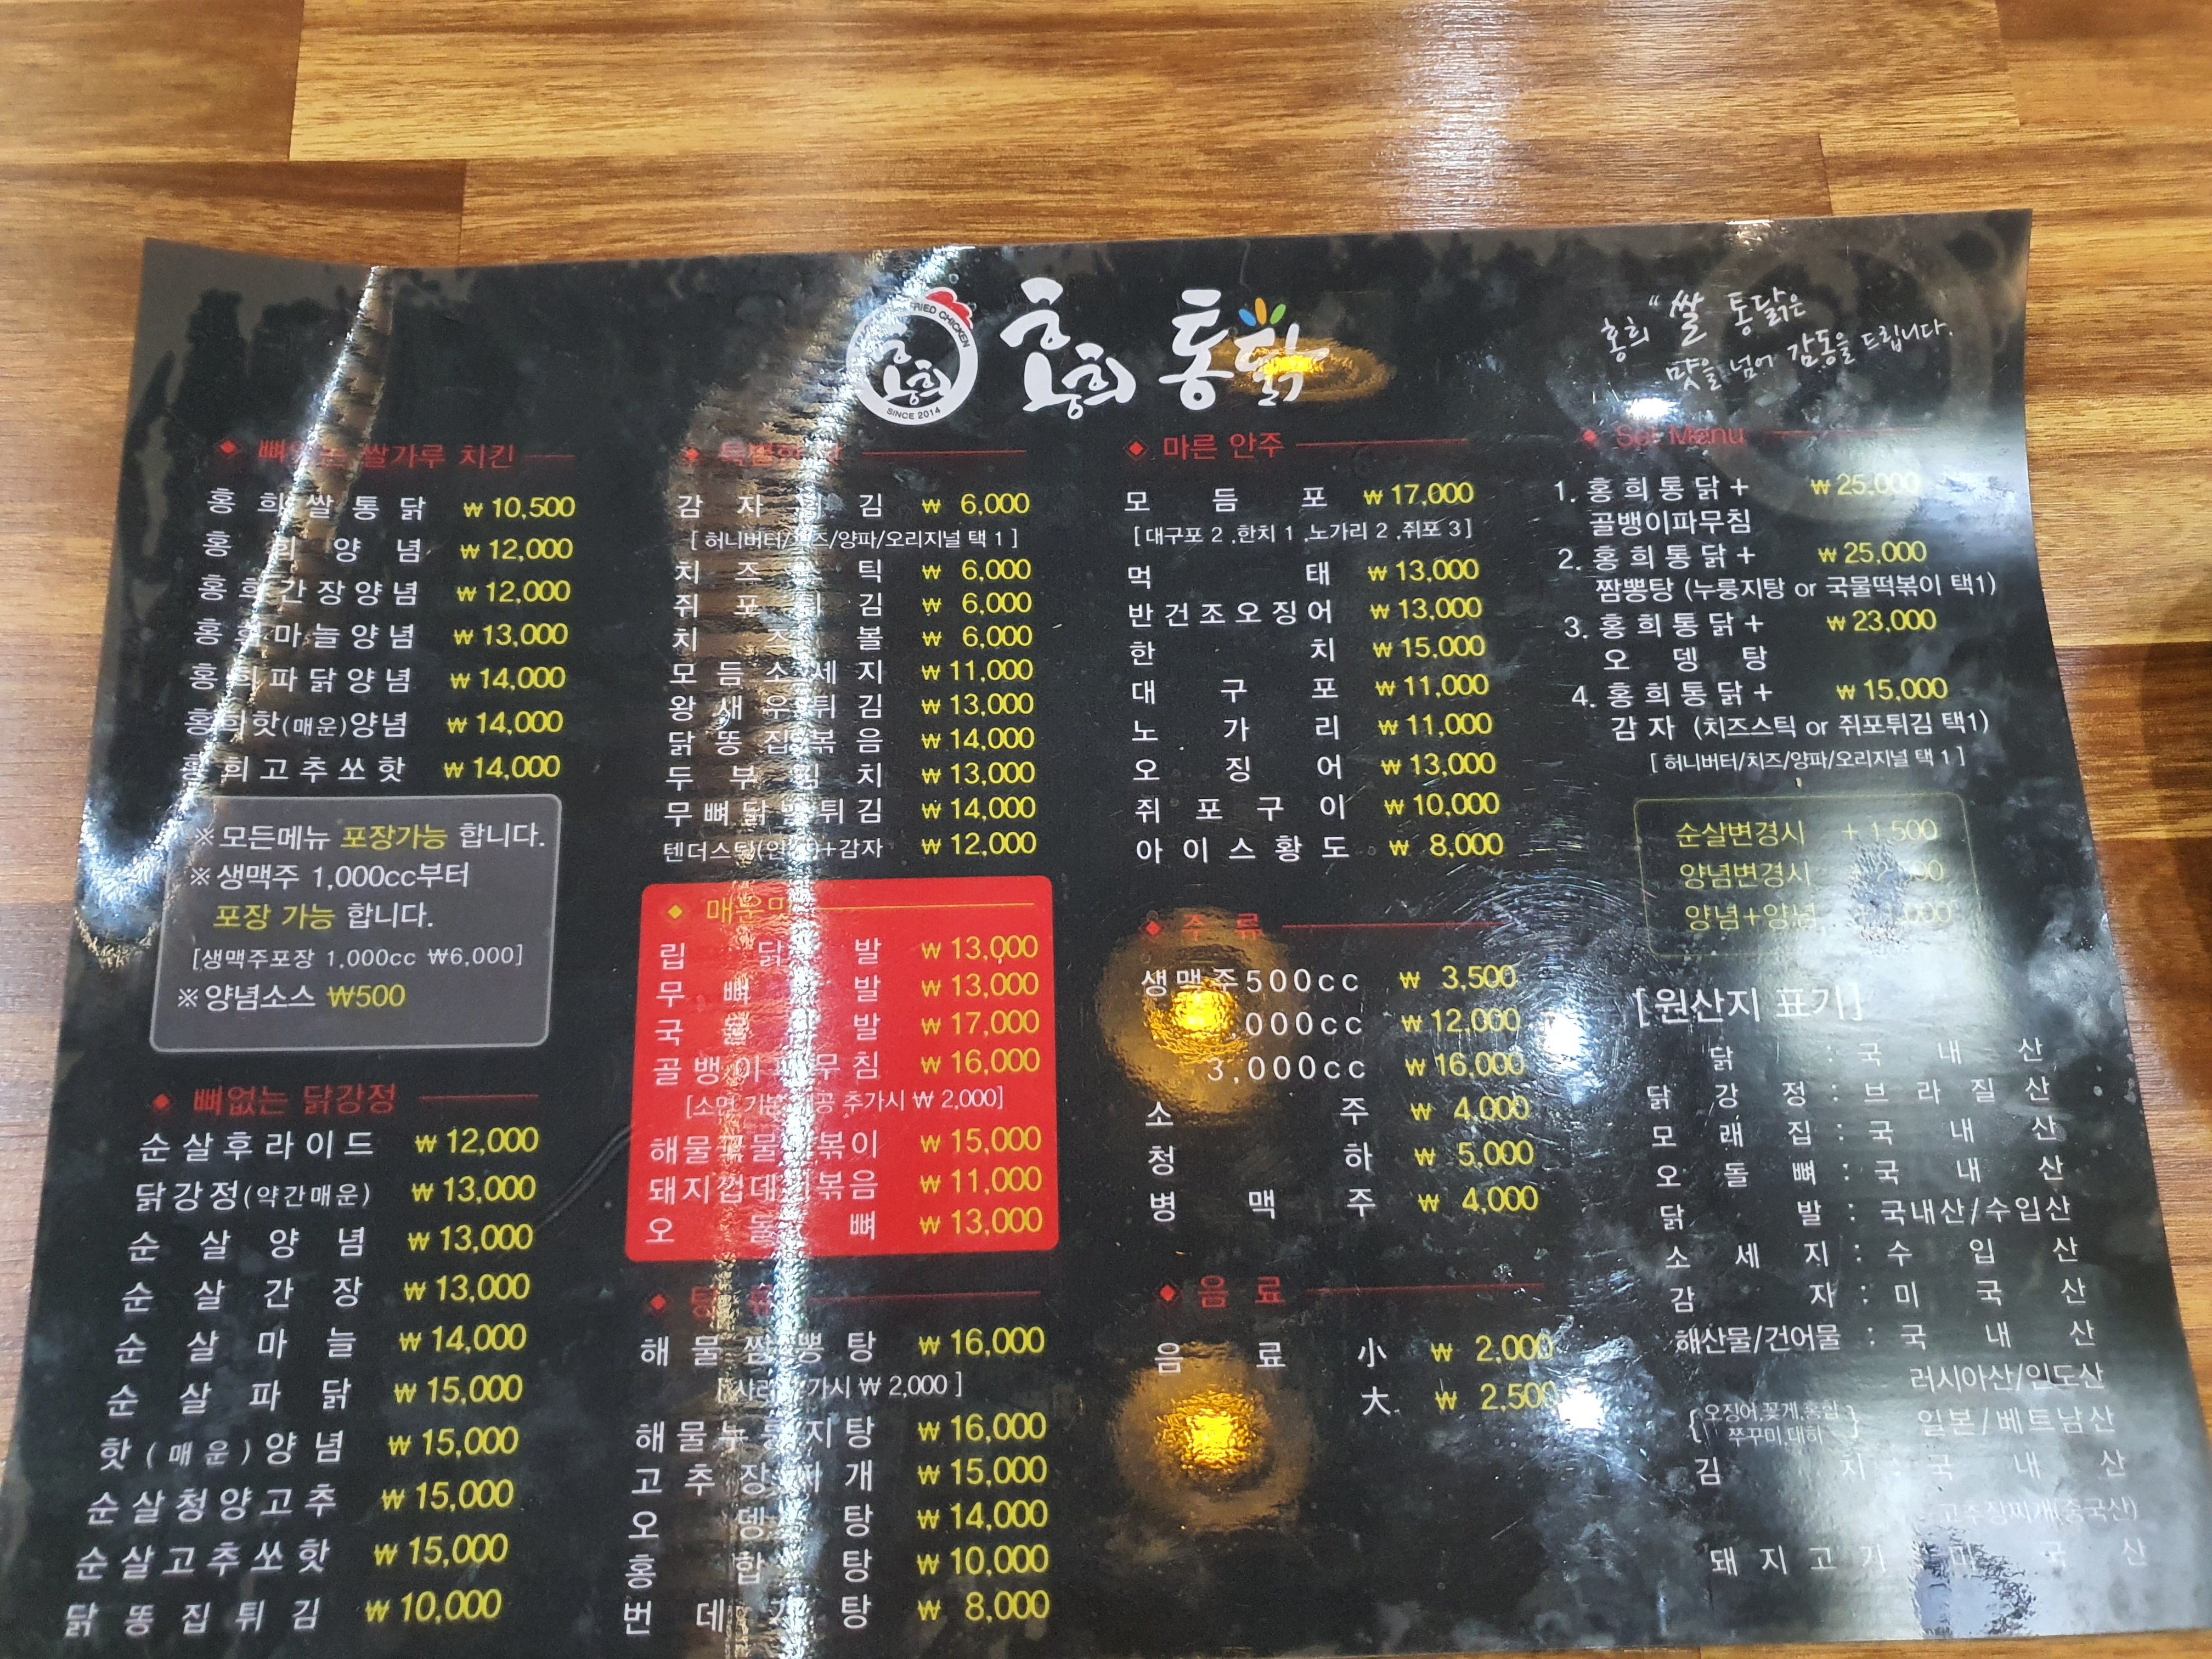 FRIED CHICKEN
홍희
SINCE 2014
홍희 통닭
홍희 "쌀 통닭은
맛을 넘어 감동을 드립니다.
뼈없는 쌀가루 치킨
홍희쌀통닭 ₩10,500
홍희양념 ₩12,000
홍희간장양념 ₩12,000
홍희마늘양념 ₩13,000
홍희파닭양념 ₩14,000
홍희핫(매운)양념 ₩14,000
홍희고추쏘핫 ₩14,000
※모든메뉴 포장가능 합니다.
※생맥주 1,000cc부터
포장 가능 합니다.
[생맥주포장 1,000cc ₩6,000]
※양념소스 ₩500
뼈없는 닭강정
순살후라이드 ₩12,000
닭강정(약간매운) ₩13,000
순살양념 ₩13,000
순살간장 ₩13,000
순살마늘 ₩14,000
순살파닭 ₩15,000
핫(매운)양념 ₩15,000
순살청양고추 ₩15,000
순살고추쏘핫 ₩15,000
닭똥집튀김 ₩10,000
감자튀김 ₩6,000
[허니버터/치즈/양파/오리지널 택1]
치즈스틱 ₩6,000
쥐포튀김 ₩6,000
치즈볼 ₩6,000
모듬소세지 ₩11,000
왕새우튀김 ₩13,000
닭똥집볶음 ₩14,000
두부김치 ₩13,000
무뼈닭발튀김 ₩14,000
+감자 ₩12,000
매운맛
립닭발 ₩13,000
무뼈닭발 ₩13,000
국물닭발 ₩17,000
골뱅이파무침 ₩16,000
[소면 기본제공 추가시 ₩2,000]
해물국물떡볶이 ₩15,000
돼지껍데기볶음 ₩11,000
오돌뼈 ₩13,000
탕류
해물짬뽕탕 ₩16,000
[사리추가시 ₩2,000]
해물누룽지탕 ₩16,000
고추장찌개 ₩15,000
오뎅탕 ₩14,000
홍합탕 ₩10,000
번데기탕 ₩8,000
마른 안주
모듬포 ₩17,000
[대구포 2 ,한치 1 ,노가리 2 ,쥐포 3]
먹태 ₩13,000
반건조오징어 ₩13,000
한치 ₩15,000
대구포 ₩11,000
노가리 ₩11,000
오징어 ₩13,000
쥐포구이 ₩10,000
아이스황도 ₩8,000
주류
생맥주500cc ₩3,500
000cc ₩12,000
3,000cc ₩16,000
소주 ₩4,000
청하 ₩5,000
병맥주 ₩4,000
음료
음료 小 ₩2,000
大 ₩2,500
Set Menu
1. 홍희통닭+ ₩25,000
골뱅이파무침
2. 홍희통닭+ ₩25,000
짬뽕탕 (누룽지탕 or 국물떡볶이 택1)
3. 홍희통닭+ ₩23,000
오뎅탕
4. 홍희통닭+ ₩15,000
감자 (치즈스틱 or 쥐포튀김 택1)
[허니버터/치즈/양파/오리지널 택1]
순살변경시 +1,500
양념변경시
양념+양념
[원산지 표기]
닭 : 국내산
닭강정 : 브라질산
모래집 : 국내산
오돌뼈 : 국내산
닭발 : 국내산/수입산
소세지 : 수입산
감자 : 미국산
해산물/건어물 : 국내산
러시아산/인도산
{오징어,꽃게,홍합 쭈꾸미,대하} 일본/베트남산
김치 : 국내산
고추장찌개(중국산)
돼지고기 : 미국산